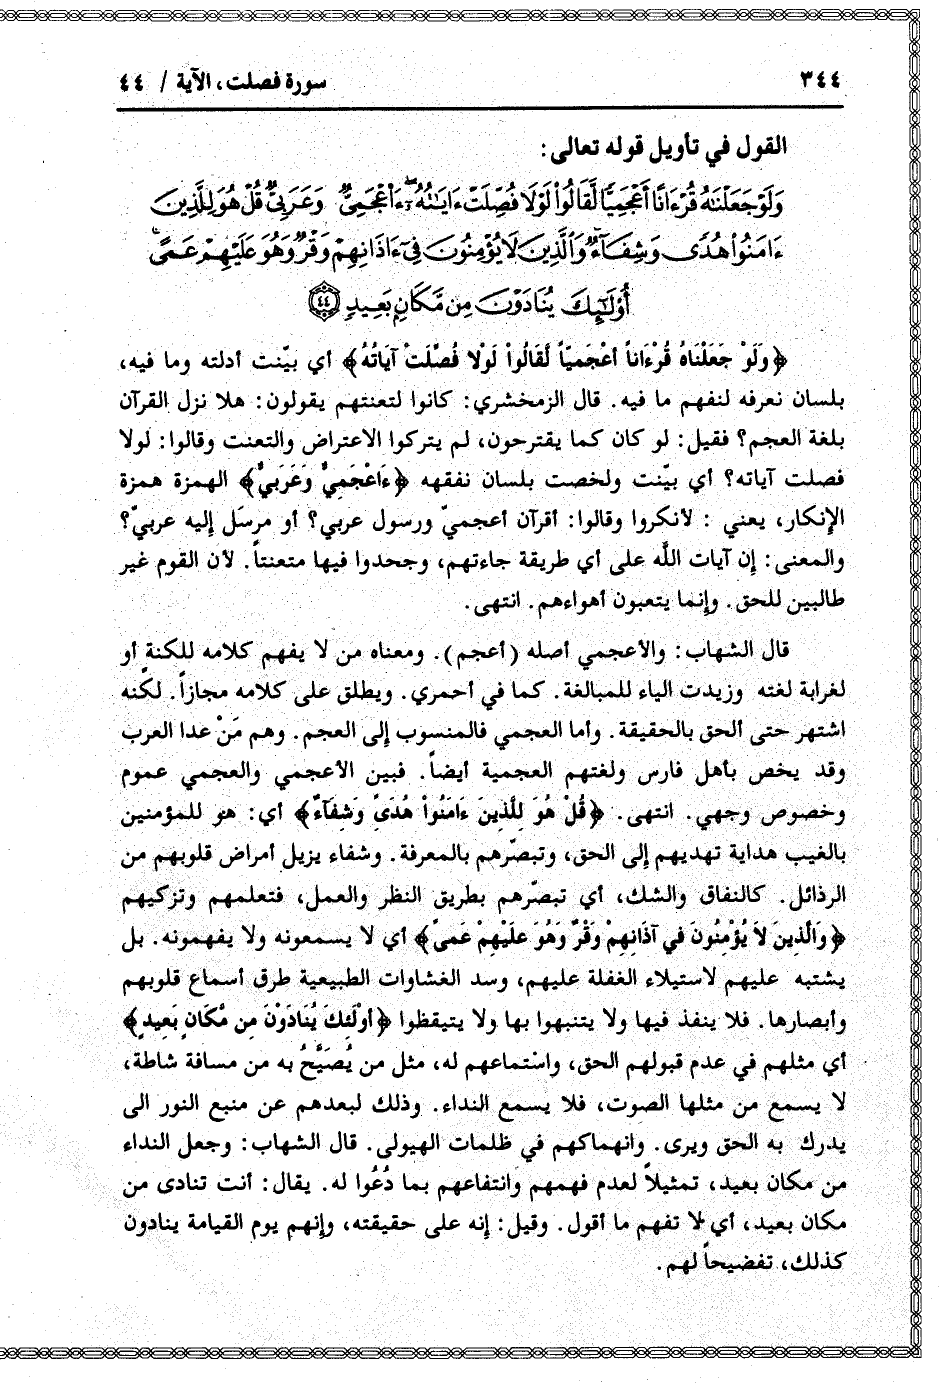 ٣٤٤ سورة فصلت، الآية / ٤٤
القول في تأويل قوله تعالى:
وَلَوْ جَعَلْنَٰهُ قُرْءَانًا أَعْجَمِيًّا لَّقَالُوا۟ لَوْلَا فُصِّلَتْ ءَايَٰتُهُۥٓ ۖ ءَا۬عْجَمِىٌّ وَعَرَبِىٌّ ۗ قُلْ هُوَ لِلَّذِينَ
ءَامَنُوا۟ هُدًى وَشِفَآءٌ ۖ وَٱلَّذِينَ لَا يُؤْمِنُونَ فِىٓ ءَاذَانِهِمْ وَقْرٌ وَهُوَ عَلَيْهِمْ عَمًى ۚ
أُو۟لَٰٓئِكَ يُنَادَوْنَ مِن مَّكَانٍۭ بَعِيدٍ ٤٤
﴿وَلَوْ جَعَلْنَاهُ قُرْءَاناً أَعْجَمِيّاً لَقَالُواْ لَوْلا فُصِّلَتْ آيَاتُهُ﴾ أي بيّنت أدلته وما فيه،
بلسان نعرفه لنفهم ما فيه. قال الزمخشري: كانوا لتعنتهم يقولون: هلا نزل القرآن
بلغة العجم؟ فقيل: لو كان كما يقترحون، لم يتركوا الاعتراض والتعنت وقالوا: لولا
فصلت آياته؟ أي بيّنت ولخصت بلسان نفقهه ﴿ءَاعْجَمِيٌّ وَعَرَبيٌّ﴾ الهمزة همزة
الإنكار، يعني : لأنكروا وقالوا: أقرآن أعجميّ ورسول عربي؟ أو مرسَل إليه عربيّ؟
والمعنى: إن آيات اللّه على أي طريقة جاءتهم، وجحدوا فيها متعنتاً. لأن القوم غير
طالبين للحق. وإنما يتعبون أهواءهم. انتهى.
قال الشهاب: والأعجمي أصله (أعجم). ومعناه من لا يفهم كلامه للكنةٍ أو
لغرابة لغته وزيدت الياء للمبالغة. كما في أحمري. ويطلق على كلامه مجازاً. لكنّه
اشتهر حتى ألحق بالحقيقة. وأما العجمي فالمنسوب إلى العجم. وهم مَنْ عدا العرب
وقد يخص بأهل فارس ولغتهم العجمية أيضاً. فبين الأعجمي والعجمي عموم
وخصوص وجهي. انتهى. ﴿قُلْ هُوَ لِلَّذِينَ ءَامَنُواْ هُدَىً وَشِفَآءٌ﴾ أي: هو للمؤمنين
بالغيب هداية تهديهم إلى الحق، وتبصّرهم بالمعرفة. وشفاء يزيل أمراض قلوبهم من
الرذائل. كالنفاق والشك، أي تبصّرهم بطريق النظر والعمل، فتعلمهم وتزكيهم
﴿وَالَّذِينَ لاَ يُؤْمِنُونَ فِي آذَانِهِمْ وَقْرٌ وَهُوَ عَلَيْهِمْ عَمىً﴾ أي لا يسمعونه ولا يفهمونه. بل
يشتبه عليهم لاستيلاء الغفلة عليهم، وسد الغشاوات الطبيعية طرق أسماع قلوبهم
وأبصارها. فلا ينفذ فيها ولا يتنبهوا بها ولا يتيقظوا ﴿أُوْلَئِكَ يُنَادَوْنَ مِن مَّكَانٍ بَعِيدٍ﴾
أي مثلهم في عدم قبولهم الحق، واسْتماعهم له، مثل من يُصَيَّحُ به من مسافة شاطة،
لا يسمع من مثلها الصوت، فلا يسمع النداء. وذلك لبعدهم عن منبع النور الى
يدرك به الحق ويرى. وانهماكهم في ظلمات الهيولى. قال الشهاب: وجعل النداء
من مكان بعيد، تمثيلاً لعدم فهمهم وانتفاعهم بما دُعُوا له. يقال: أنت تنادى من
مكان بعيد، أي لا تفهم ما أقول. وقيل: إنه على حقيقته، وإنهم يوم القيامة ينادون
كذلك، تفضيحاً لهم.